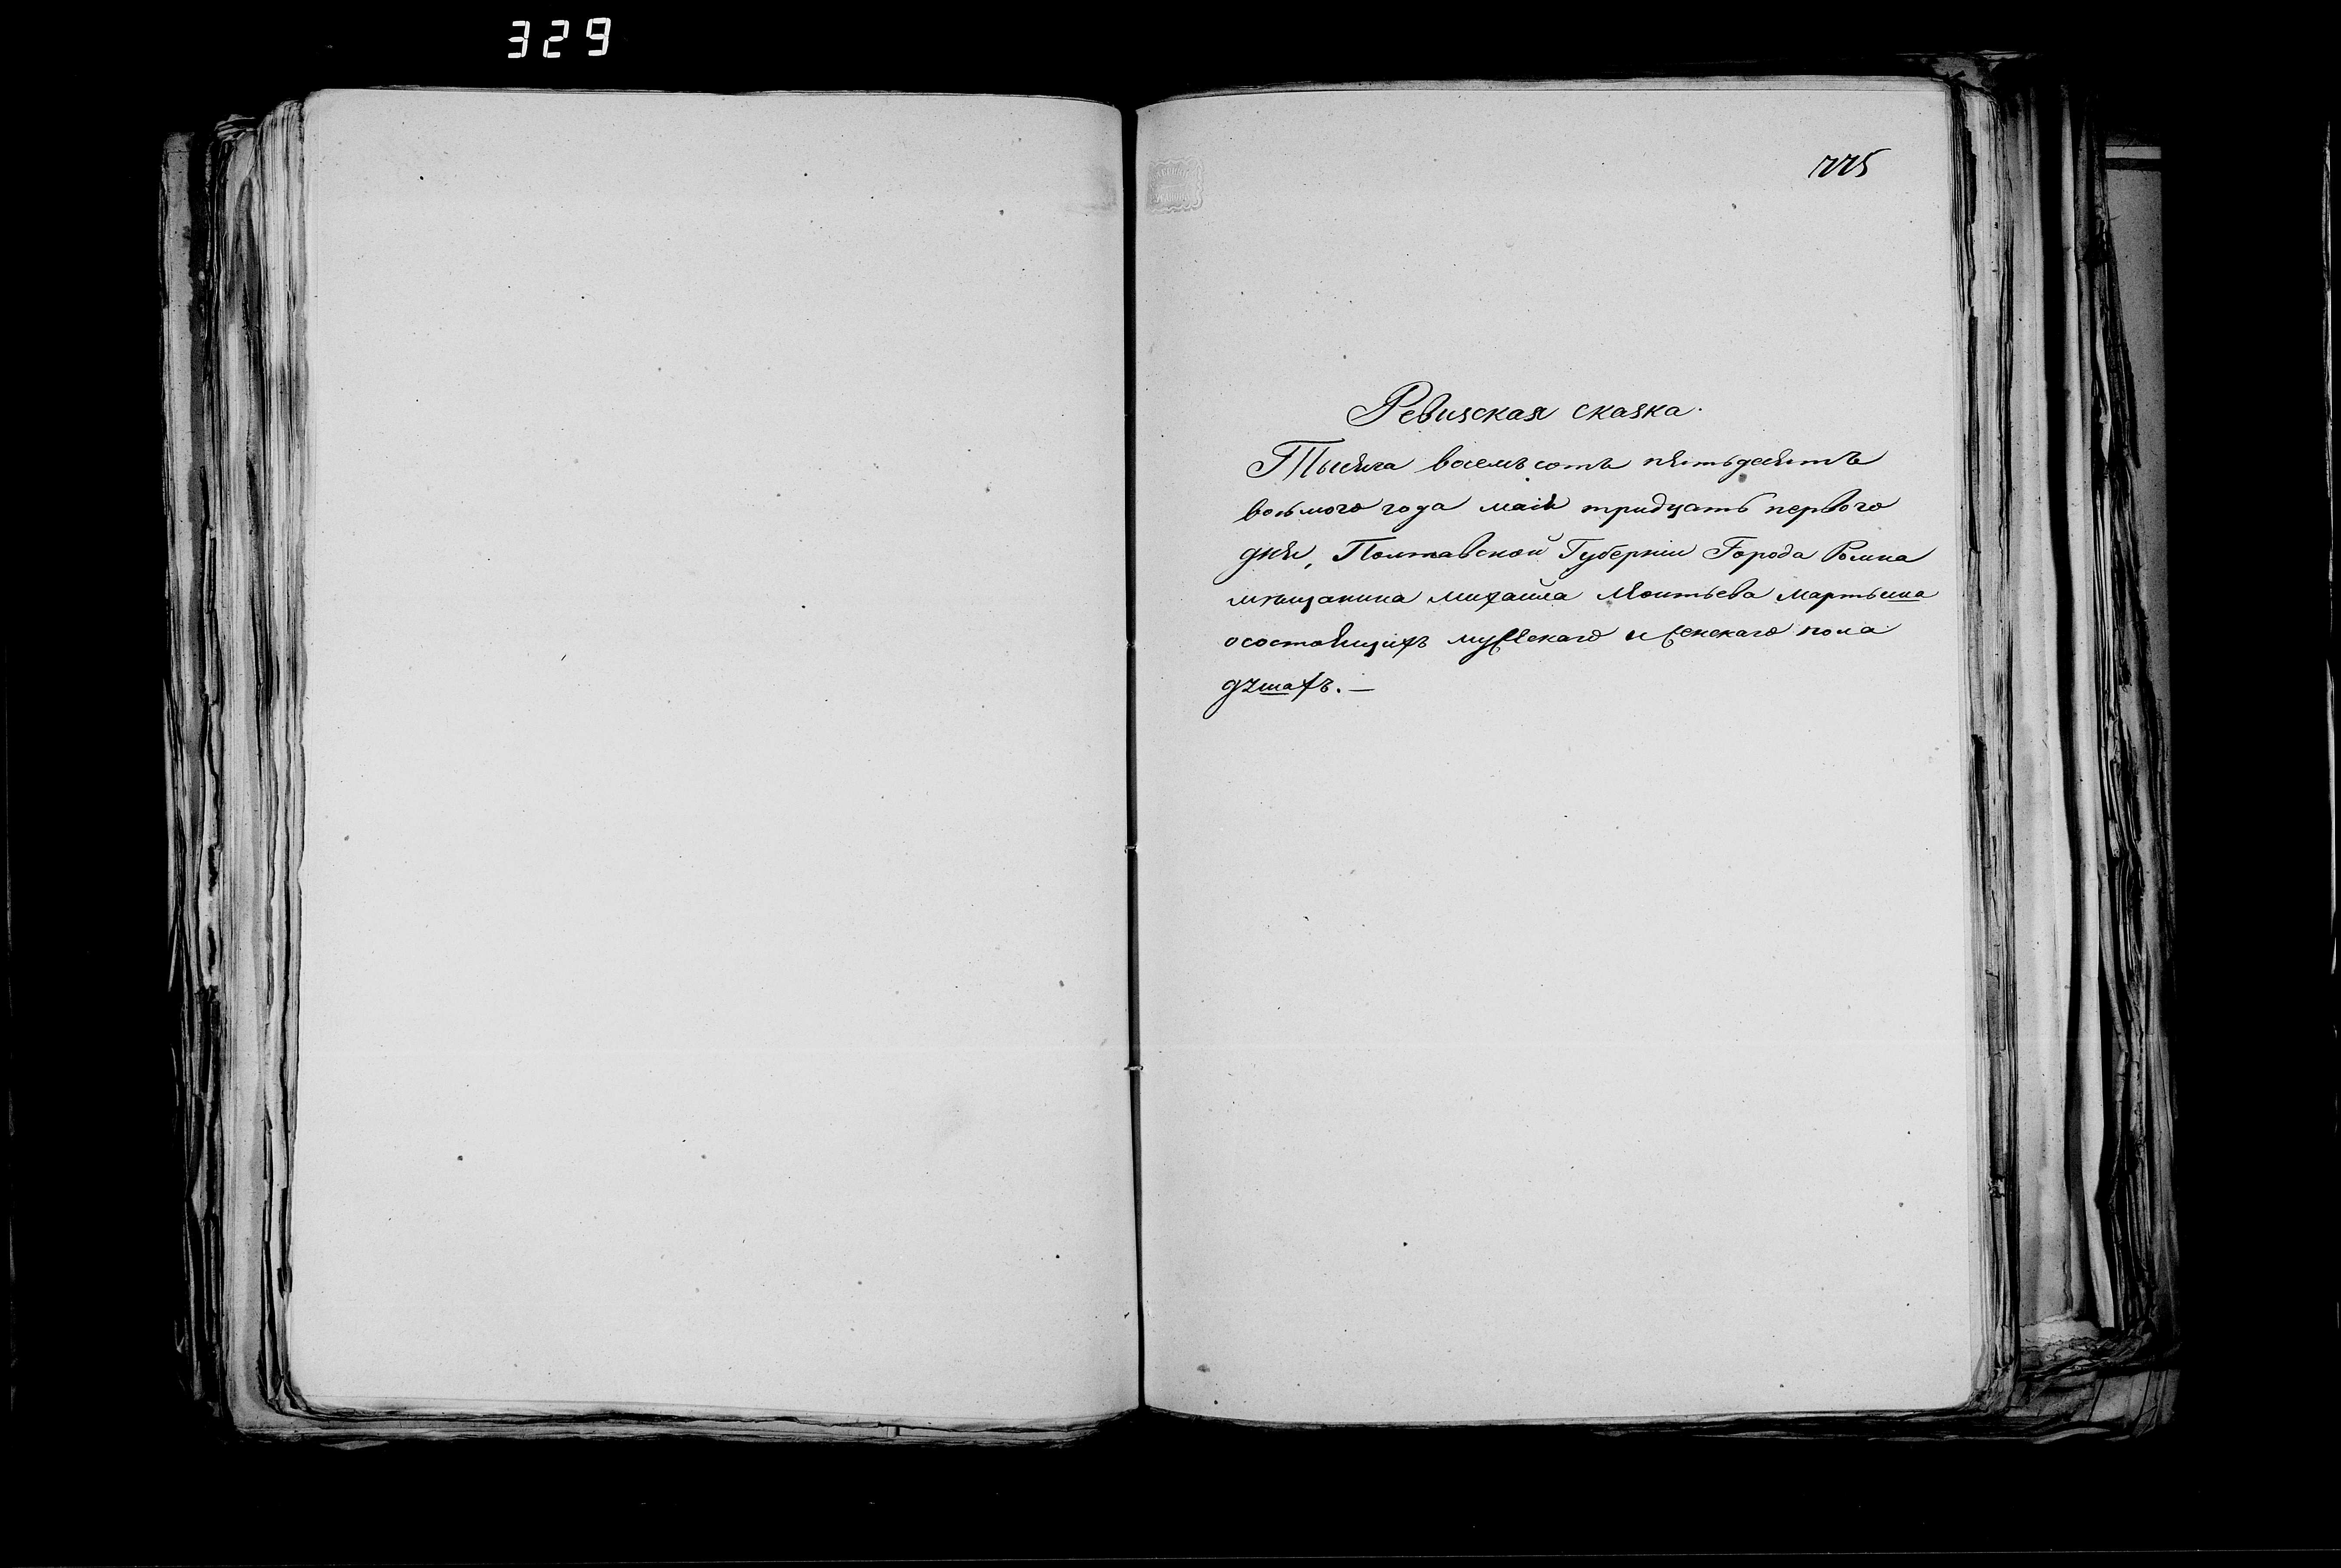 329
775
Ревизская сказка.
Тысяча восемьсотъ пятьдесятъ
восьмого года мая тридцать первого
дня, Полтавской Губерніи Города Ромна
мѣщанина михаила Леонтьева мартына
осостоящихъ мужескаго и женскаго пола
душахъ. —